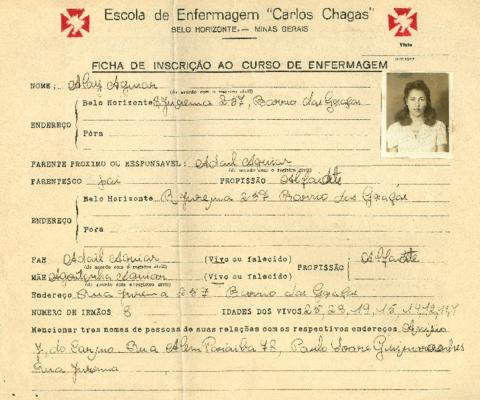 Escola de Enfermagem "Carlos Chagas"
BELO HORIZONTE — MINAS GERAIS
Visto
FICHA DE INSCRIÇÃO AO CURSO DE ENFERMAGEM
NOME: Aguiar
(de acordo com o registro civil)
ENDEREÇO
Belo Horizonte 257, Bairro das Graças
Fóra
PARENTE PROXIMO OU RESPONSAVEL: Adail Aguiar
(de acordo com o registro civil)
PARENTESCO pai PROFISSÃO Alfaiate
ENDEREÇO
Belo Horizonte R. Jurema 257 Bairro das Graças
Fora
PAE Adail Aguiar (Vivo ou falecido) PROFISSÃO Alfaiate
(de acordo com o registro civil)
MÃE Aguiar (Vivo ou falecido)
(de acordo com o registro civil)
Endereço, Rua Jurema 257 Bairro das Graças
NUMERO DE IRMÃOS 8 IDADES DOS VIVOS 25, 23, 19, 15,
Mencionar tres nomes de pessoa de suas relações com os respectivos endereços,
do Carmo Rua Além Paraiba 78, Paulo Soares
Rua Jurema